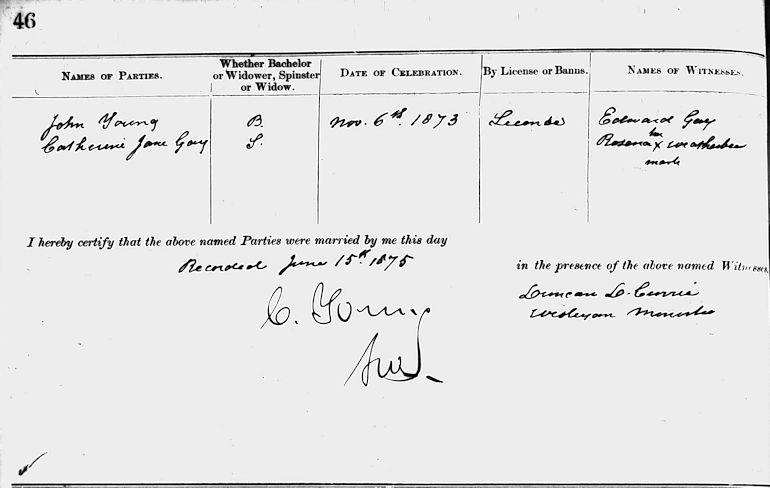 46
NAMES OF PARTIES.
Whether Bachelor or Widower, Spinster or Widow.
DATE OF CELEBRATION.
By License or Banns.
NAMES OF WITNESSES.
John Young B. Nov. 6th. 1873 License Edward Gay
Catherine Jane Gay S. Rosena her x mark Weatherbee
I hereby certify that the above named Parties were married by me this day
Recorded June 15th 1875
in the presence of the above named Witnesses,
Duncan D. Currie
Wesleyan Minister
C. Young